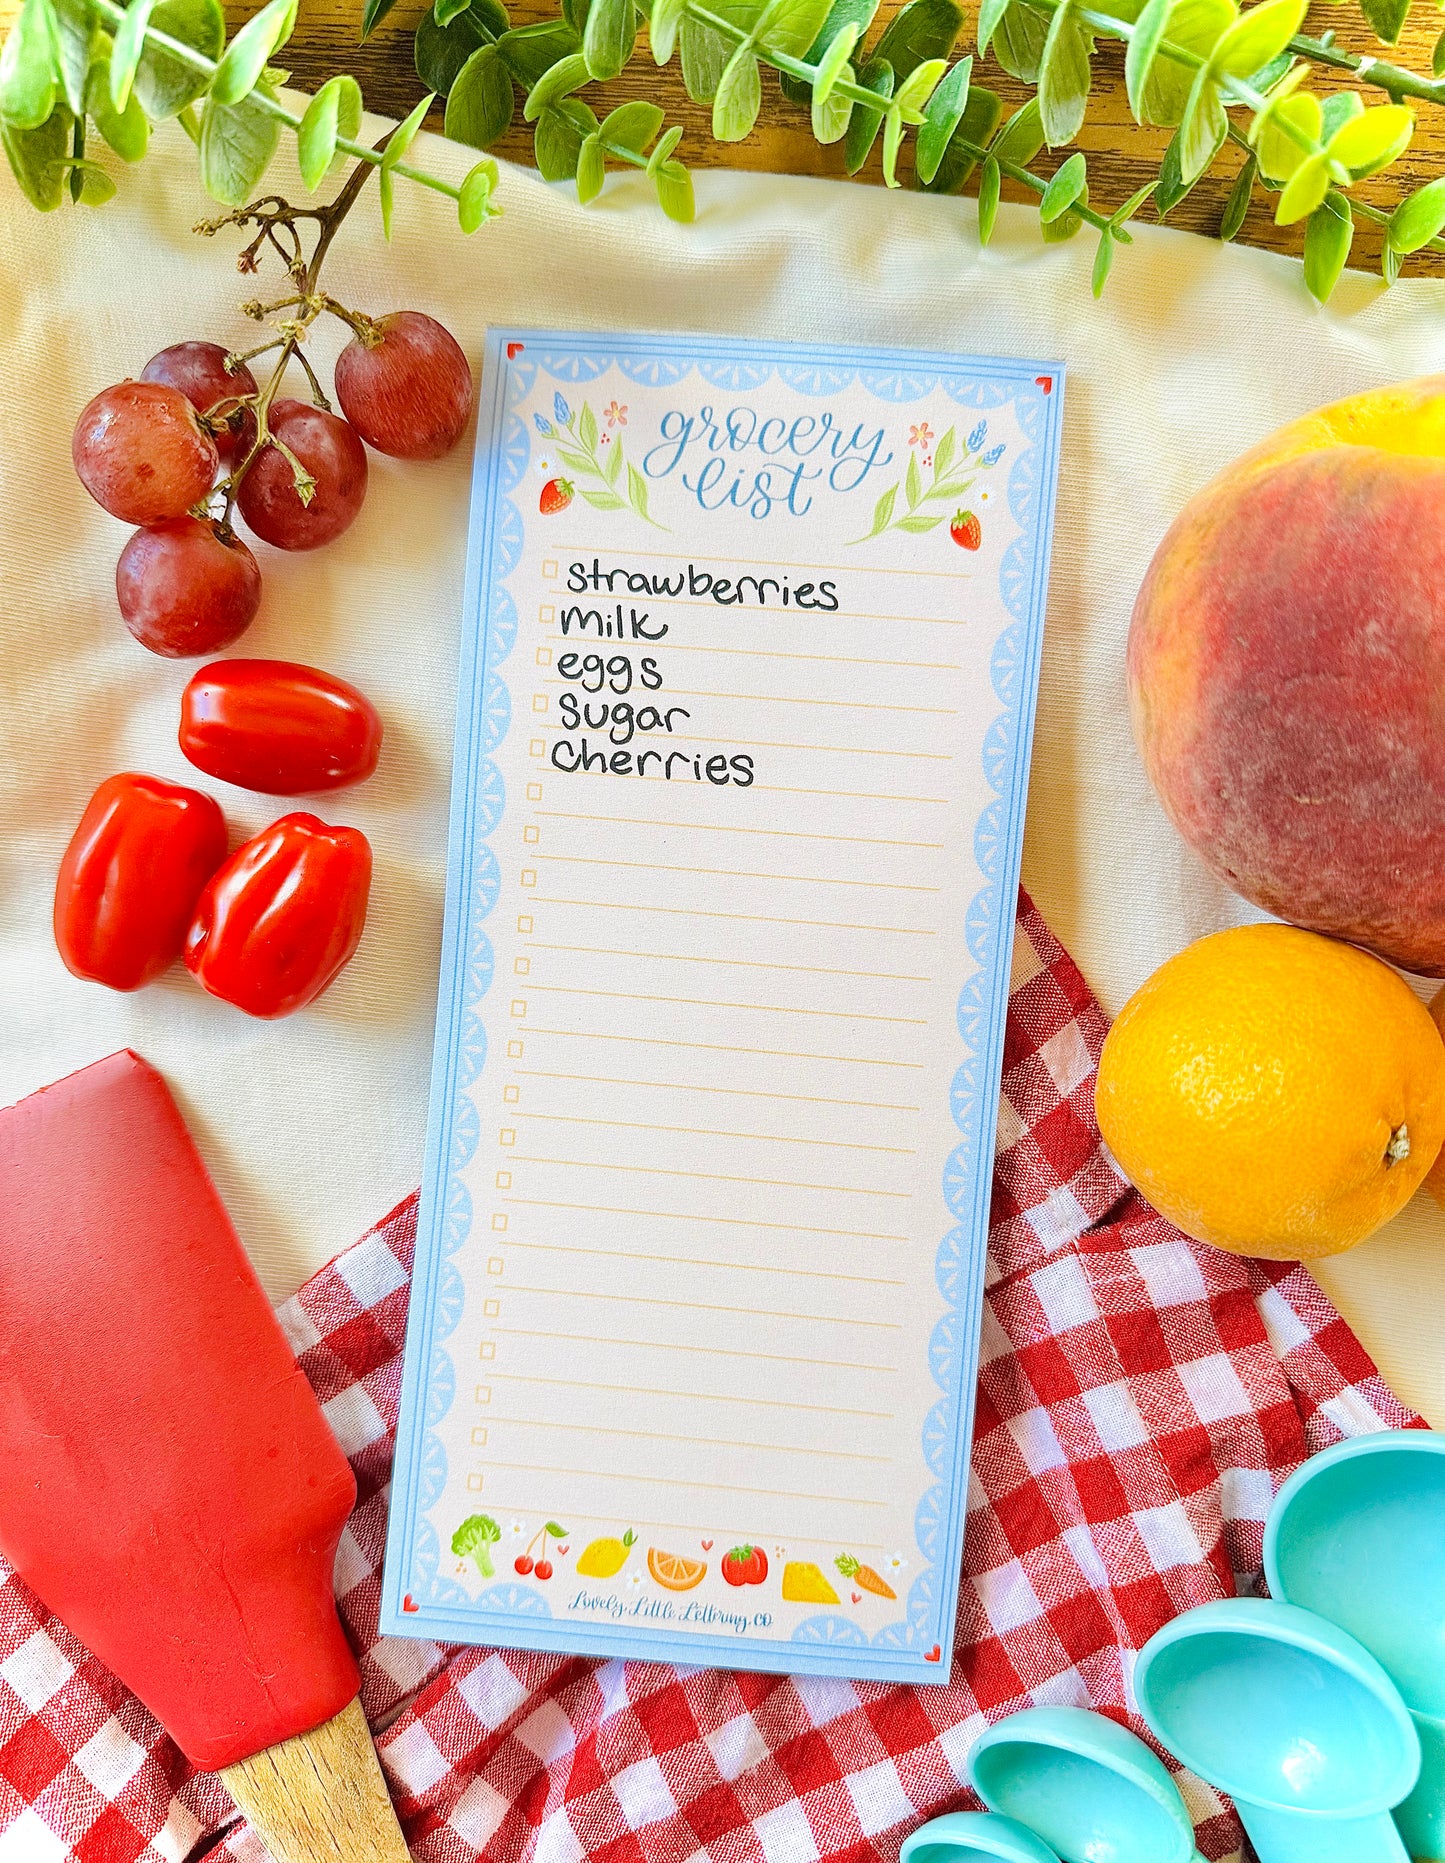 grocery
list
strawberries
milk
eggs
sugar
cherries
Lovely Little Lettering co